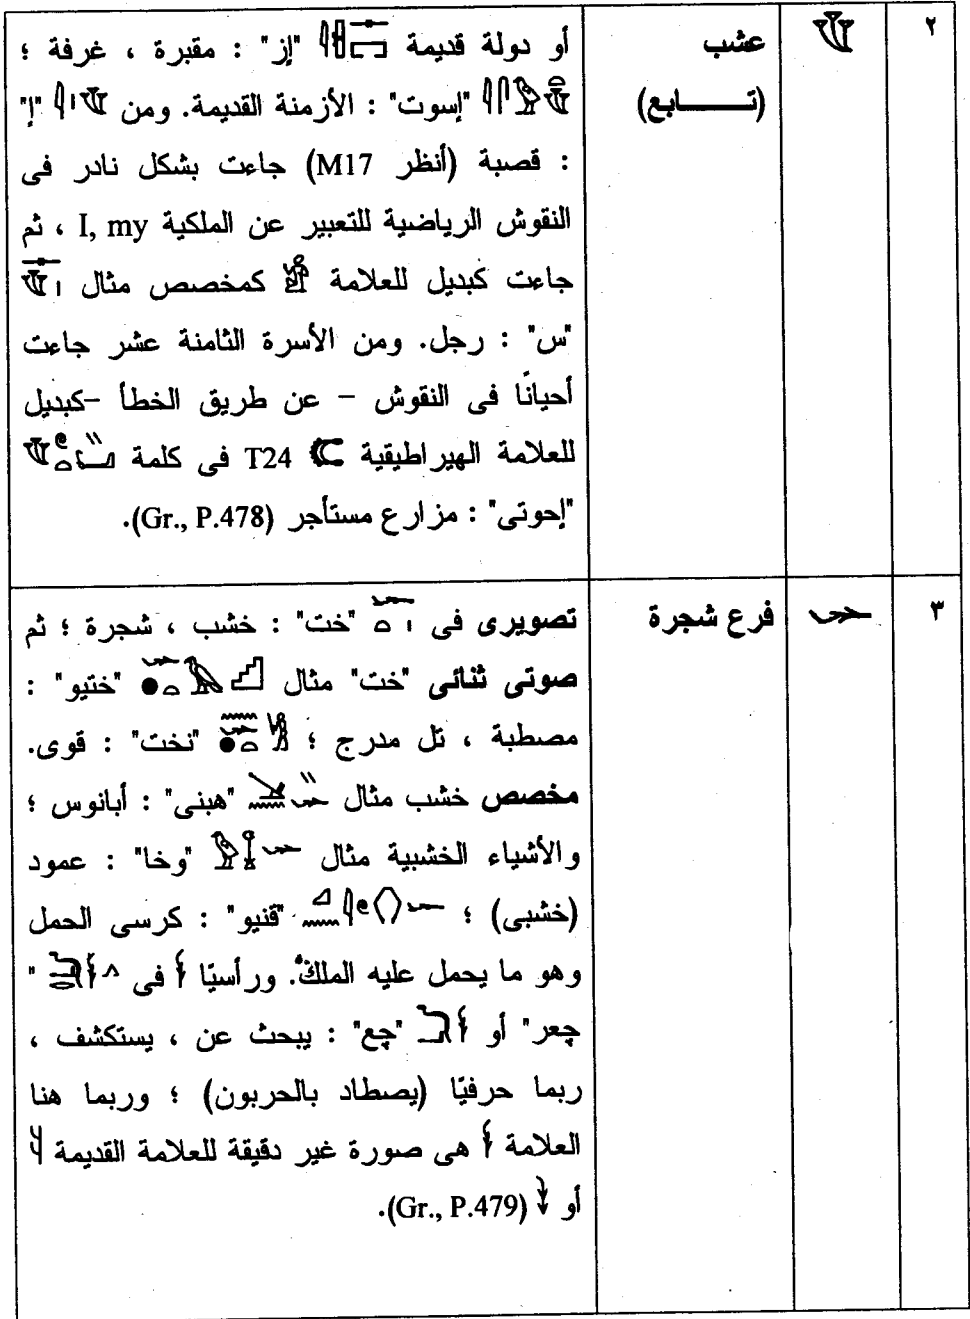 ٢
عشب
(تـــــابع)
أو دولة قديمة "إز" : مقبرة ، غرفة ؛
"إسوت" : الأزمنة القديمة. ومن "إ"
: قصبة (أنظر M17) جاءت بشكل نادر فى
النقوش الرياضية للتعبير عن الملكية I, my ، ثم
جاءت كبديل للعلامة كمخصص مثال
"س" : رجل. ومن الأسرة الثامنة عشر جاءت
أحيانًا فى النقوش – عن طريق الخطأ –كبديل
للعلامة الهيراطيقية T24 فى كلمة
"إحوتى" : مزارع مستأجر (Gr., P.478).
٣
فرع شجرة
تصويرى فى "خت" : خشب ، شجرة ؛ ثم
صوتى ثنائى "خت" مثال "ختيو" :
مصطبة ، تل مدرج ؛ "نخت" : قوى.
مخصص خشب مثال "هبنى" : أبانوس ؛
والأشياء الخشبية مثال "وخا" : عمود
(خشبى) ؛ "قنيو" : كرسى الحمل
وهو ما يحمل عليه الملك. ورأسيًا فى "
چعر" أو "چع" : يبحث عن ، يستكشف ،
ربما حرفيًا (يصطاد بالحربون) ؛ وربما هنا
العلامة هى صورة غير دقيقة للعلامة القديمة
أو (Gr., P.479).